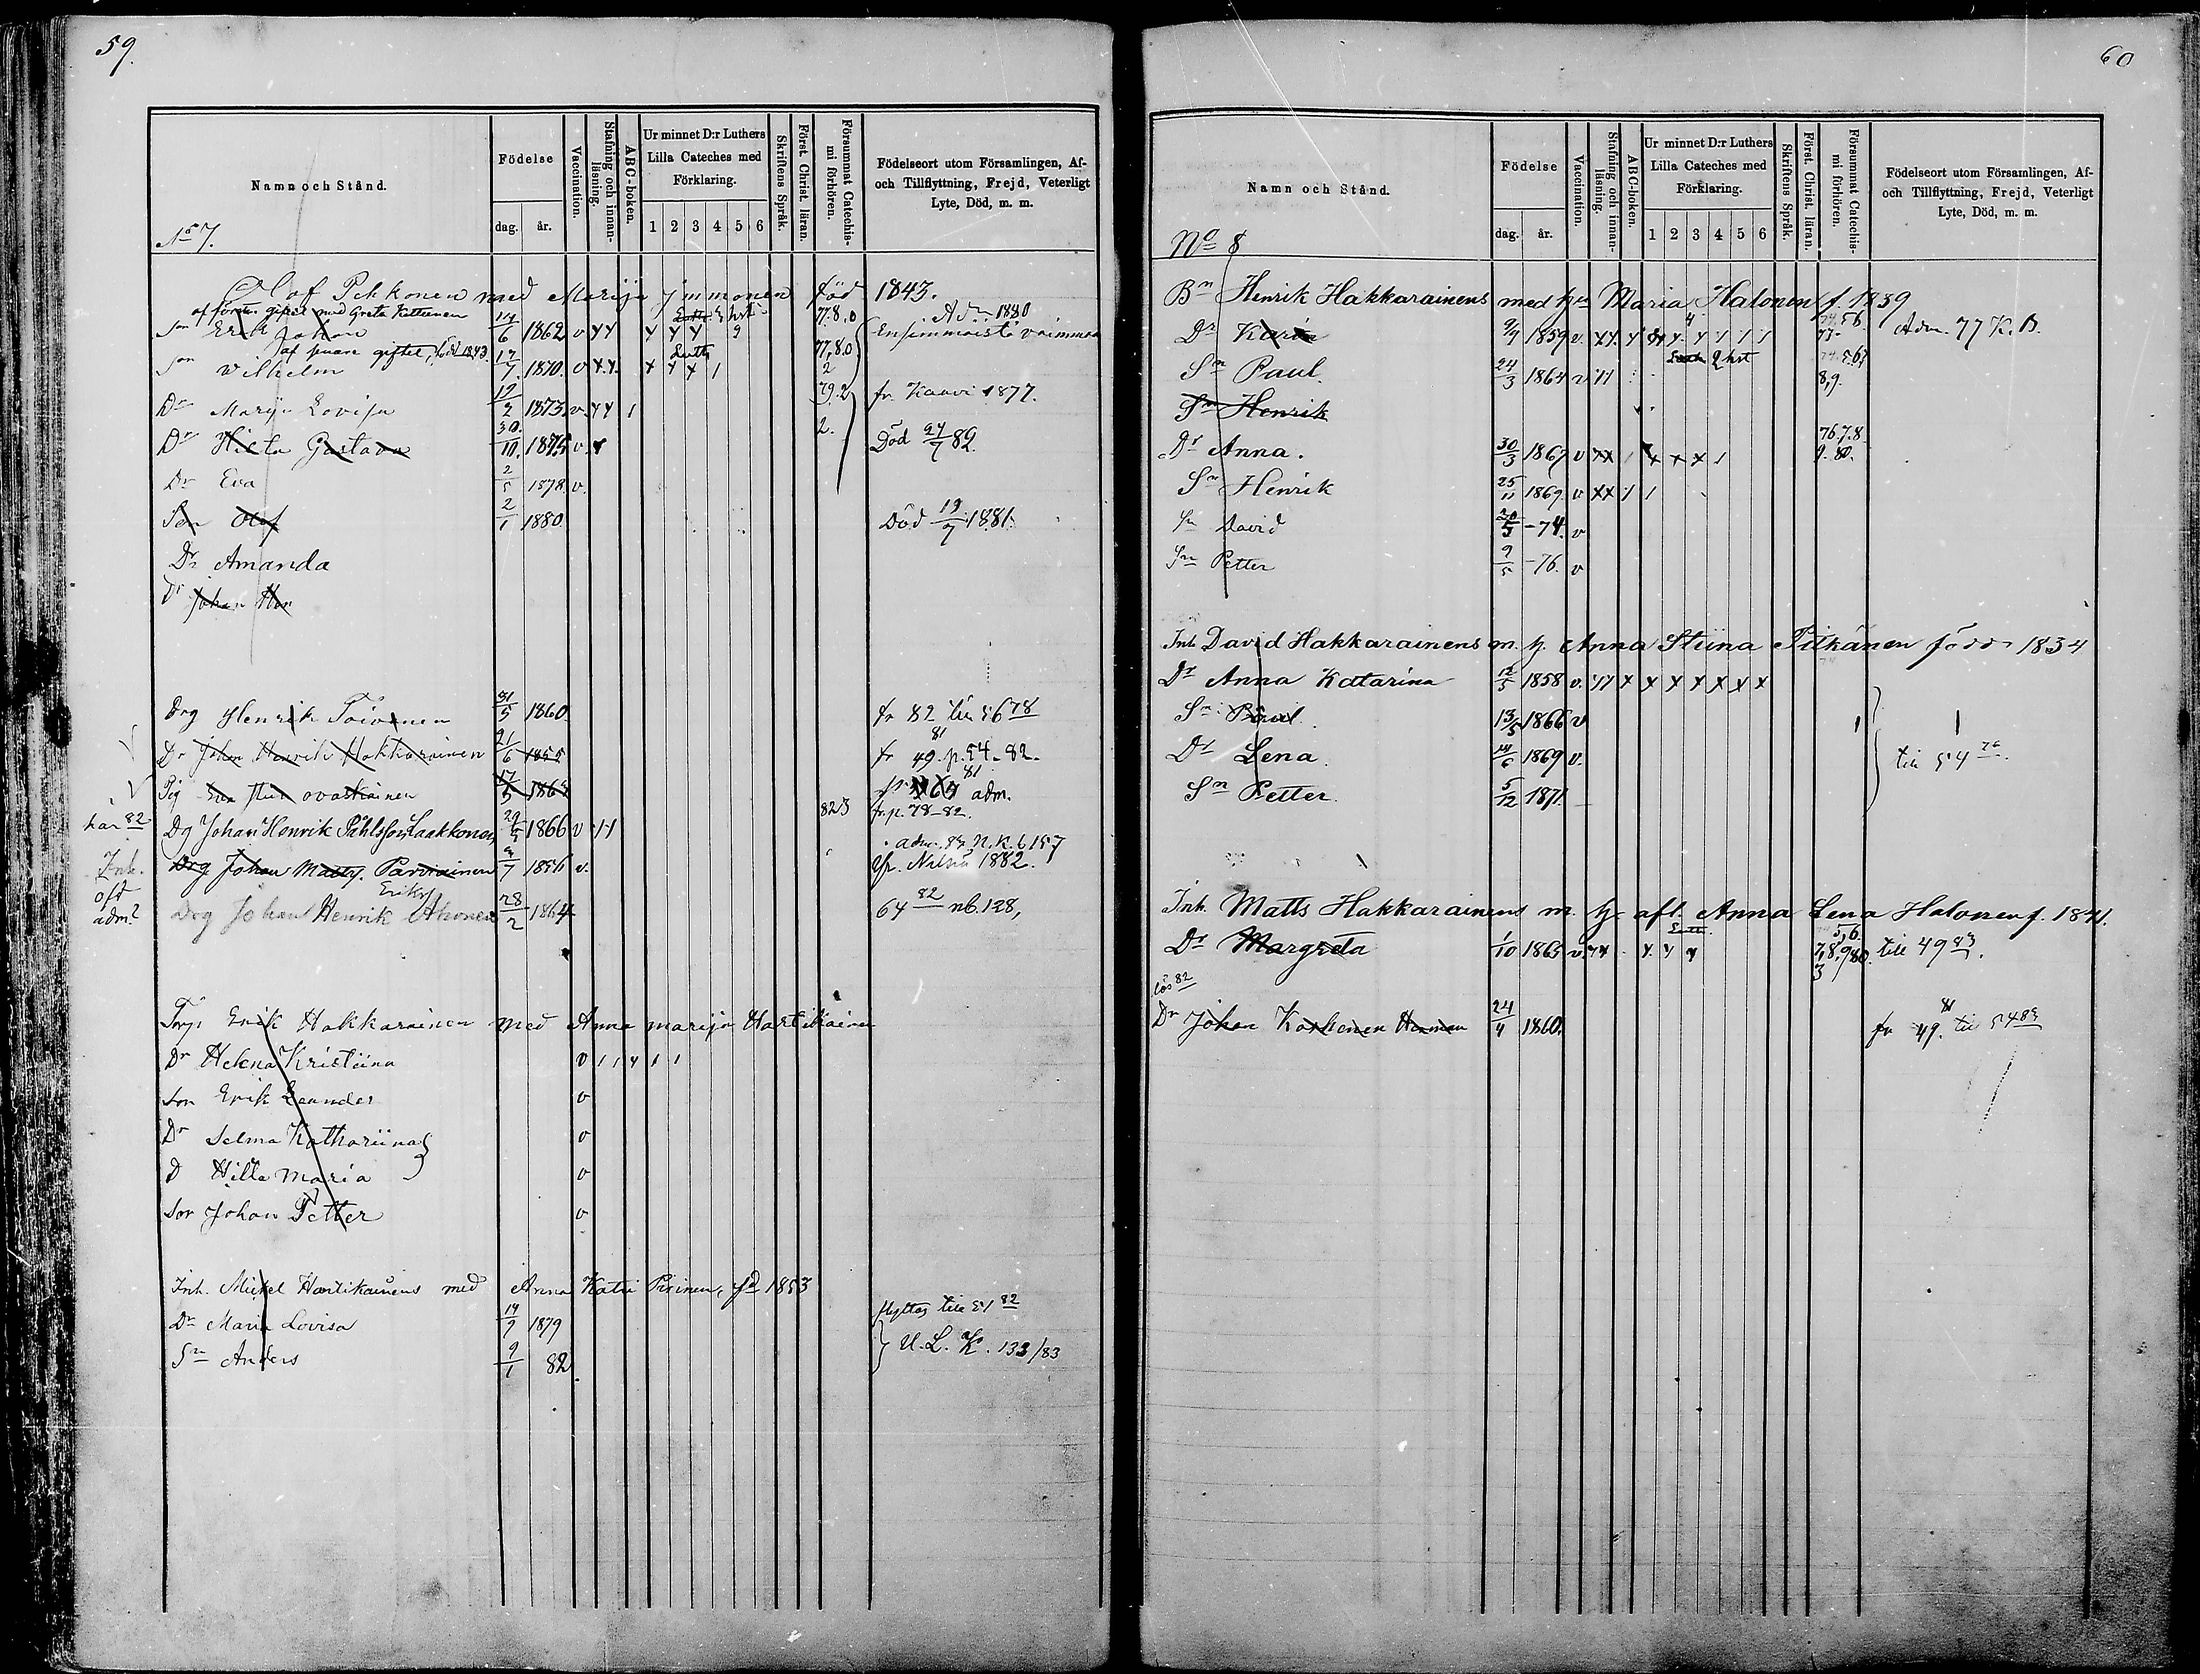 59.
Namn och Stånd.
Födelse
dag. år.
Vaccination.
Stafning och innanläsning.
ABC-boken.
Ur minnet D:r Luthers Lilla Cateches med Förklaring.
1 2 3 4 5 6
Skriftens Språk.
Först. Christ. läran.
Försummat Catechismi förhören.
Födelseort utom Församlingen, Af- och Tillflyttning, Frejd, Veterligt Lyte, Död, m. m.
No 7.
Olof Pekkonen med Marija Immonen född 1843.
af förra giftet med Greta Kettunen
Son Erik Johan 14/6 1862 v 77.8,0 Adm 1880 Ensimmäistä vaimmoa
af snare giftet, född 1843.
Son Wilhelm 17/7. 1870. v 77,8.0 2
Dr Marija Lovisa 19/2 1873. v. 79.2 fr. Kaavi 1877.
Dr Hilta Gustava 30./10. 1875 v 2. Död 24/7 82.
Dr Eva 2/5 1878. v.
Son Olof 2/1 1880 Död 13/7 1881.
Dr Amanda
Johan
Drg Henrik Toivanen 31/5 1860 fr 82 till 56 78
Dr Johan Henrik Hakkarainen 21/6 1855 fr 49 81 p. 54 - 82.
Pig 17/5 1864 81 adm.
här 82 Dg Johan Henrik Påhlsson Laakkonen 29/5 1866 v 11 823 fr. p. 78-82.
adm. 83 N. K. 6 157
Inh. Drg Johan Matts. Parviainen 9/7 1856 v. Fr. Nilsiä 1882.
oft adm? Drg Johan Henrik Eriks. Ahonen 28/2 1864 64 82 nb. 128,
Torp Erik Hakkarainen med Anna Marija Hartikainen
Dr Helena Kristiina v
Son Erik Leander v
Dr Selma Kathariina v
D Hilta Maria v
Son Johan Petter v
Inh. Mickel Hartikainens med Anna Katri Pirinen, fd 1853
Dr Maria Lovisa 14/9 1879 flyttas till 51 82
Sn Anders 9/1 82 U. L. K. 133/83
60
Namn och Stånd.
Födelse
dag. år.
Vaccination.
Stafning och innanläsning.
ABC-boken.
Ur minnet D:r Luthers Lilla Cateches med Förklaring.
1 2 3 4 5 6
Skriftens Språk.
Först. Christ. läran.
Försummat Catechismi förhören.
Födelseort utom Församlingen, Af- och Tillflyttning, Frejd, Veterligt Lyte, Död, m. m.
No 8
Bn Henrik Hakkarainens med h. Maria Halonen f. 1839
Dr Karin 9/9 1859 v. Adm. 77 K. B.
Sn Paul. 24/3 1864 v 8,9.
Sn Henrik
Dr Anna. 30/3 1867 v 76.7.8. 9. 80.
Sn Henrik 25/11 1869. v
Sn David 20/5 -74. v
Sn Petter 9/5 -76. v
Inh David Hakkarainens m. h. Anna Stiina Pitkänen född 1834
Dr Anna Katarina 12/5 1858 v.
Sn Paul. 13/5 1866 v
Dr Lena. 14/6 1869 v. till 54 76.
Sn Petter. 5/12 1871.
Inh. Matts Hakkarainens m. h. afl. Anna Lena Halonen f. 1841.
Dr Margreta 1/10 1865 v. 5,6. 7,8,9,80. 3 till 49 83.
lös 82
Dr Johan Korhonen 24/4 1860. fr 49. 81 till 54 83